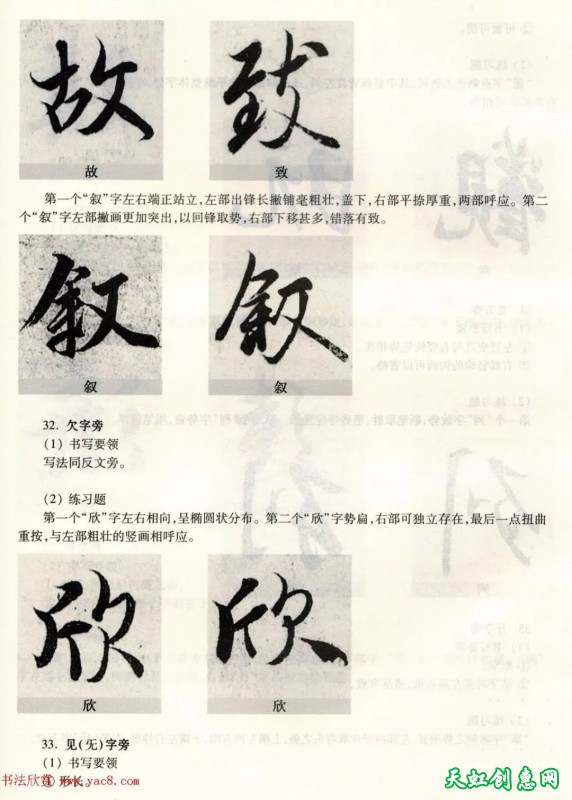 故 致
故 致
第一个“叙”字左右端正站立,左部出锋长撇铺毫粗壮,盖下,右部平捺厚重,两部呼应。第二
个“叙”字左部撇画更加突出,以回锋取势,右部下移甚多,错落有致。
叙 叙
叙 叙
32. 欠字旁
(1) 书写要领
写法同反文旁。
(2) 练习题
第一个“欣”字左右相向,呈椭圆状分布。第二个“欣”字势扁,右部可独立存在,最后一点扭曲
重按,与左部粗壮的竖画相呼应。
欣 欣
欣 欣
33. 见(旡)字旁
(1) 书写要领
① 形长。
书法欣赏 www.yac8.com
天虹创惠网